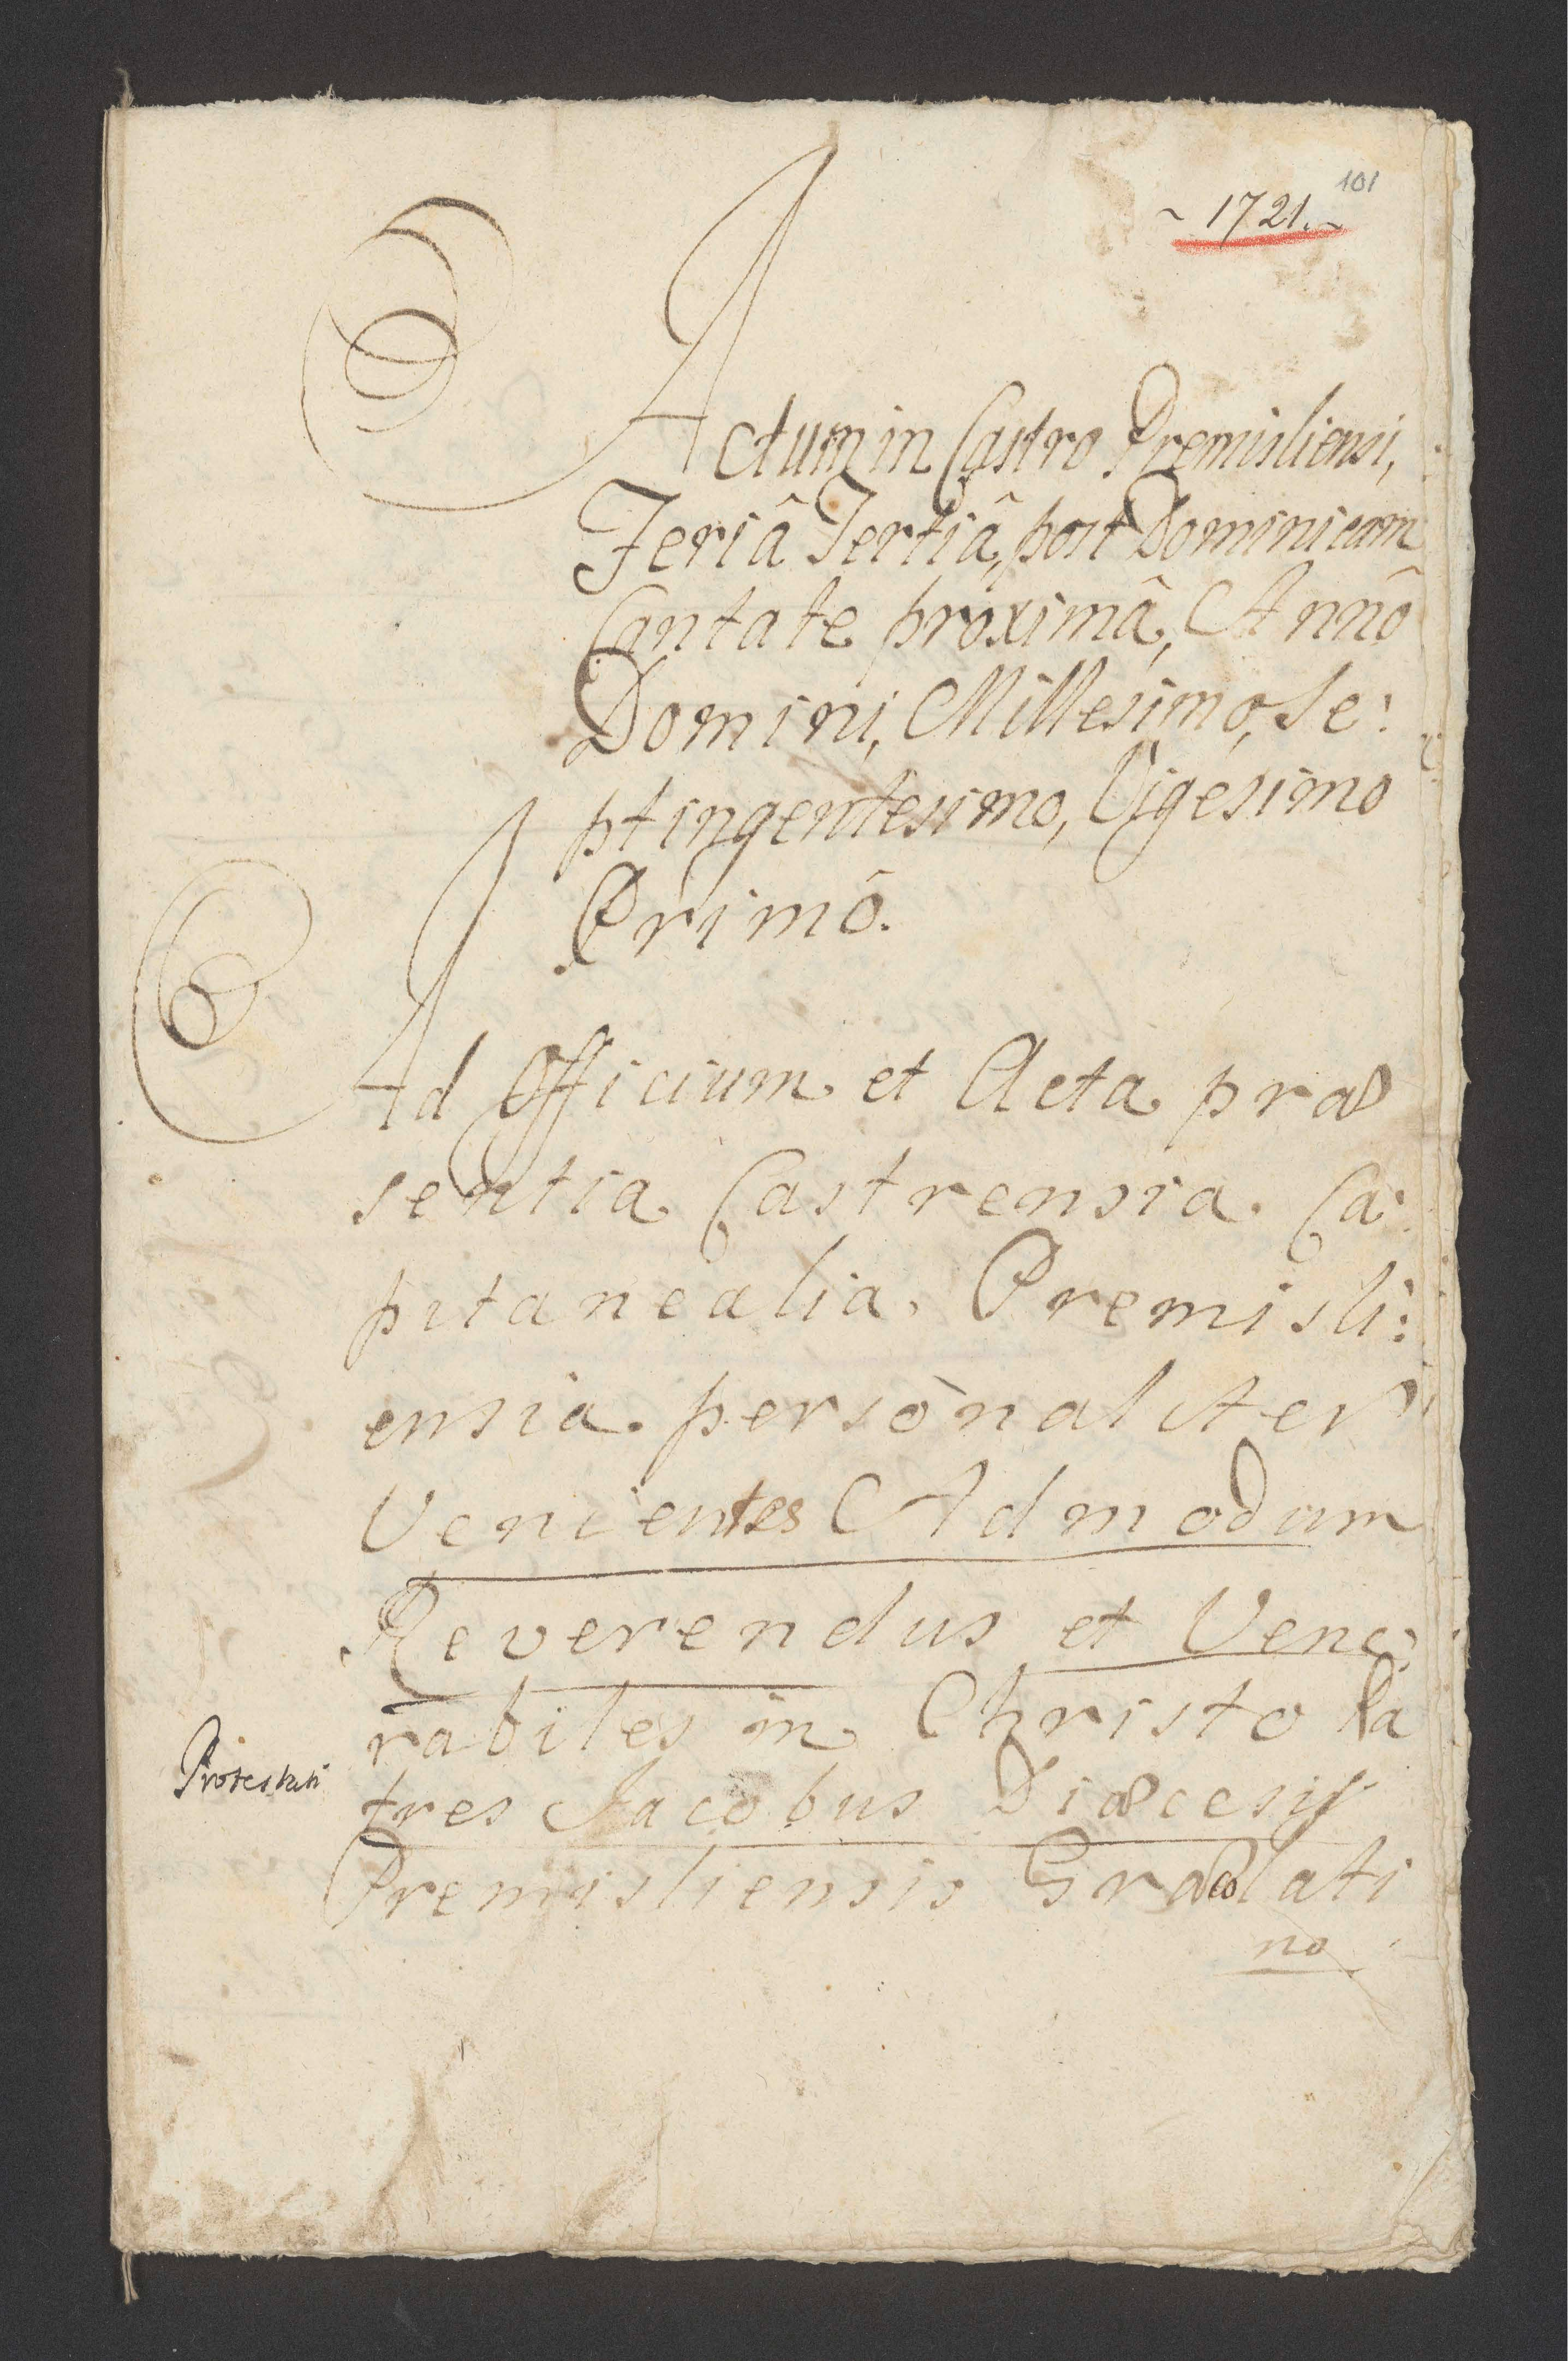 101
~ 1721. ~
Actum in Castro Premisliensi,
Feriâ Tertiâ, post Dominicam
Cantate proximâ, Annô
Domini, Millesimo, Se:
ptingentesimo, Vigesimo
Primô.
Ad Officium et Acta præ
sentia Castrensia Ca:
pitanealia. Premisli:
ensia. personaliter
Venientes Admodum
Reverendus et Vene:
rabiles in Christo Pa
tres Jacobus Diæcesis
Protestati
Premisliensis Græcolati
no